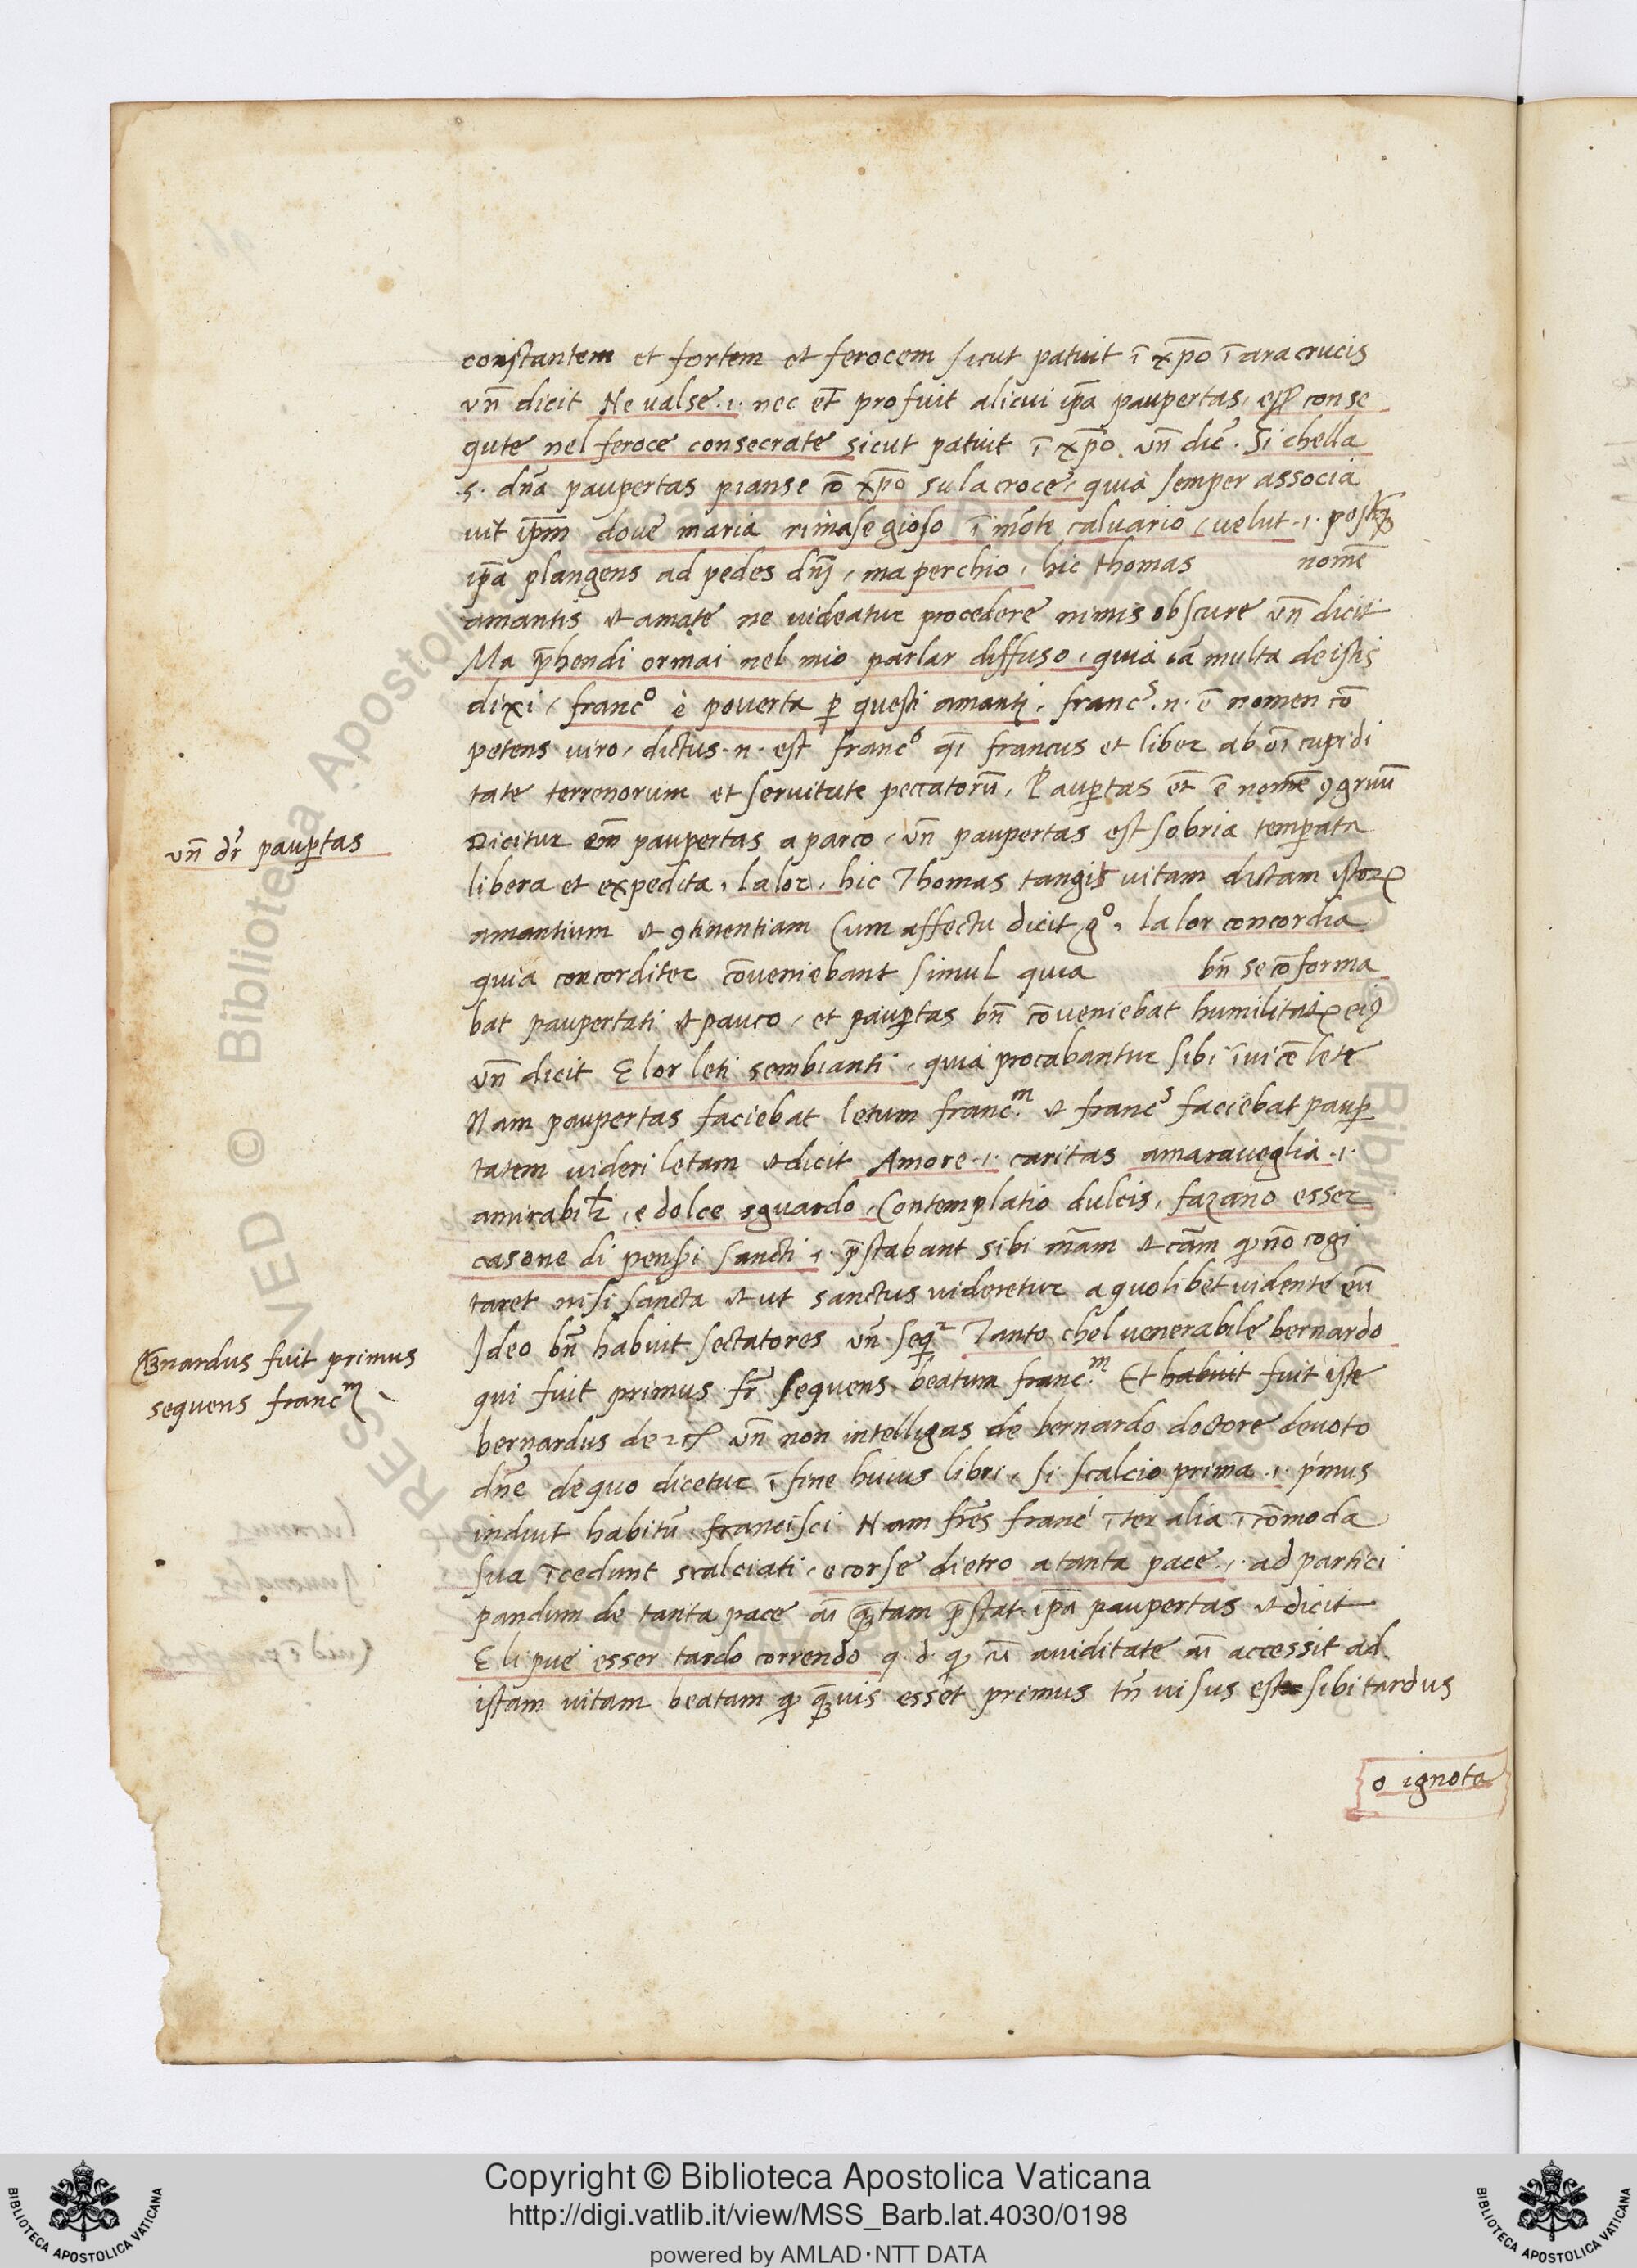 constantem et fortem et ferocem sicut patuit ī xp̄o ī ara crucis
vn̄ dicit Ne valse .i. nec et̄ profuit alicui ip̄a paupertas, ess̄ conse
gute nel feroce consecrate sicut patuit ī xp̄o. vn̄ dic̄. Si chella
.s. dn̄a paupertas pianse cō xp̄o su la croce, quia semper associa
vit ip̄m dove maria rimase gioso ī mōte calvario, velut .i. postq̄
ip̄a plangens ad pedes dn̄j, ma perchio, hic thomas nomē
amantis et amate ne videatur procedere nimis obscure vn̄ dicit
Ma p̄hendi ormai nel mio parlar diffuso, quia iā multa de istis
dixi, francº è poverta p̱ questi amanti, francˢ .n. ē nomen cō
petens viro, dictus .n. est francˢ q̄i francus et liber ab oī cupidi
tate terrenorum et servitute peccatorū, Paup̱tas et̄ ē nomē ꝯgruū
vn̄ dr̄ paup̱tas
Dicitur em̄ paupertas a parco, vn̄ paupertas est sobria temperata
libera et expedita, la lor, hic Thomas tangit vitam dictam istoꝝ
amantium et ꝯtinentiam Cum affectu dicit gº, la lor concordia
quia concorditer cōveniebant simul quia bn̄ se cōforma
bat paupertati et pauco, et paup̱tas bn̄ cōveniebat humilitati eiꝰ
vn̄ dicit E lor leti sembianti, quia procabantur sibi īvicē lete
Nam paupertas faciebat letum franc.ᵐ et francˢ faciebat paup̱
tatem videri letam et dicit Amore .i. caritas amaraveglia .i.
amirabilr̄, e dolce sguardo, Contemplatio dulcis, fazano esser
casone di pensi sancti .i. p̄stabant sibi mām et cām qꝫ nō cogi
taret nisi sancta et ut sanctus videretur a quolibet vidente eū
Bernardus fuit primus
sequens francᵐ
Ideo bn̄ habuit sectatores vn̄ seqʳ Tanto chel venerabile bernardo
qui fuit primus fr̄ sequens beatum franc.ᵐ Et habuit fuit iste
bernardus de vn̄ non intelligas de bernardo doctore devoto
dn̄e de quo dicetur ī fine huius libri, si scalcio prima .i. p'mus
induit habitū francisci Nam fr̄es francⁱ īter alia īcōmoda
sua īcedunt scalciati, e corse dietro a tanta pace .i. ad partici
pandum de tanta pace aī q̄tam p̄stat ip̄a paupertas et dicit
E li pue esser tardo correndo q. d. qꝫ cū aviditate aī accessit ad
istam vitam beatam qꝫ q̄vis esset primus tn̄ visus est sibi tardus
o ignota
Copyright © Biblioteca Apostolica Vaticana
http://digi.vatlib.it/view/MSS_Barb.lat.4030/0198
powered by AMLAD·NTT DATA
BIBLIOTECA APOSTOLICA VATICANA
BIBLIOTECA APOSTOLICA VATICANA